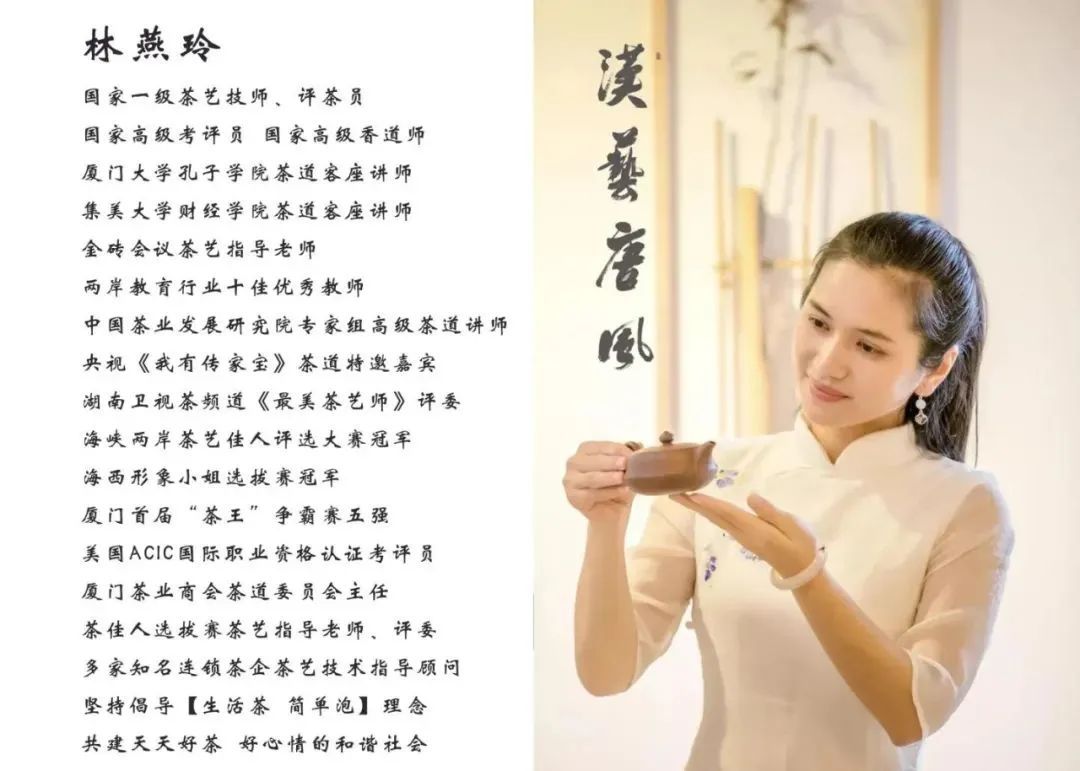 林燕玲
国家一级茶艺技师、评茶员
国家高级考评员 国家高级香道师
厦门大学孔子学院茶道客座讲师
集美大学财经学院茶道客座讲师
金砖会议茶艺指导老师
两岸教育行业十佳优秀教师
中国茶业发展研究院专家组高级茶道讲师
央视《我有传家宝》茶道特邀嘉宾
湖南卫视茶频道《最美茶艺师》评委
海峡两岸茶艺佳人评选大赛冠军
海西形象小姐选拔赛冠军
厦门首届“茶王”争霸赛五强
美国ACIC国际职业资格认证考评员
厦门茶业商会茶道委员会主任
茶佳人选拔赛茶艺指导老师、评委
多家知名连锁茶企茶艺技术指导顾问
坚持倡导【生活茶 简单泡】理念
共建天天好茶 好心情的和谐社会
漢藝唐風